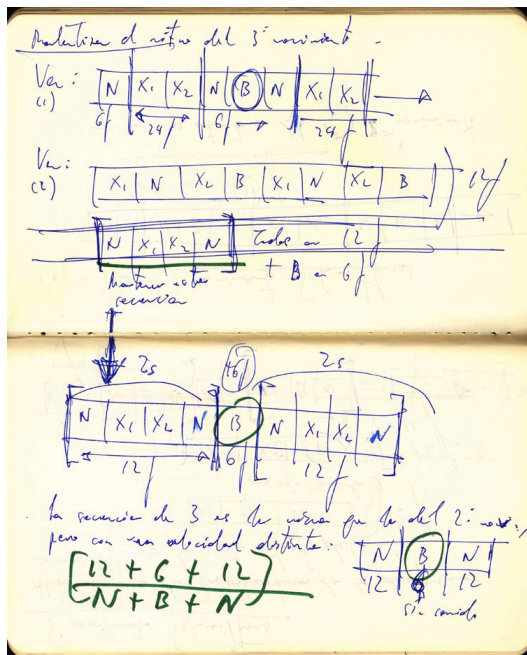 Ralentizar el ritmo del 3º movimiento.
Ver: (1) N X1 X2 N B N X1 X2
6f 24f 6f 24f
Ver: (2) X1 N X2 B X1 N X2 B 12f
N X1 X2 N Todos en 12f
+ B en 6f
Mantener esta
secuencia
2s +6f 2s
N X1 X2 N B N X1 X2 N
12f 6f 12f
La secuencia de 3 es la misma que la del 2º mov.,
pero con una velocidad distinta:
N B N
12 12
[12 + 6 + 12]
N + B + N
sin sonido